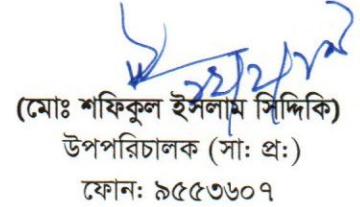 (মোঃ শফিকুল ইসলাম সিদ্দিকি)
উপপরিচালক (সা: প্র:)
ফোন: ৯৫৫৩৬০৭